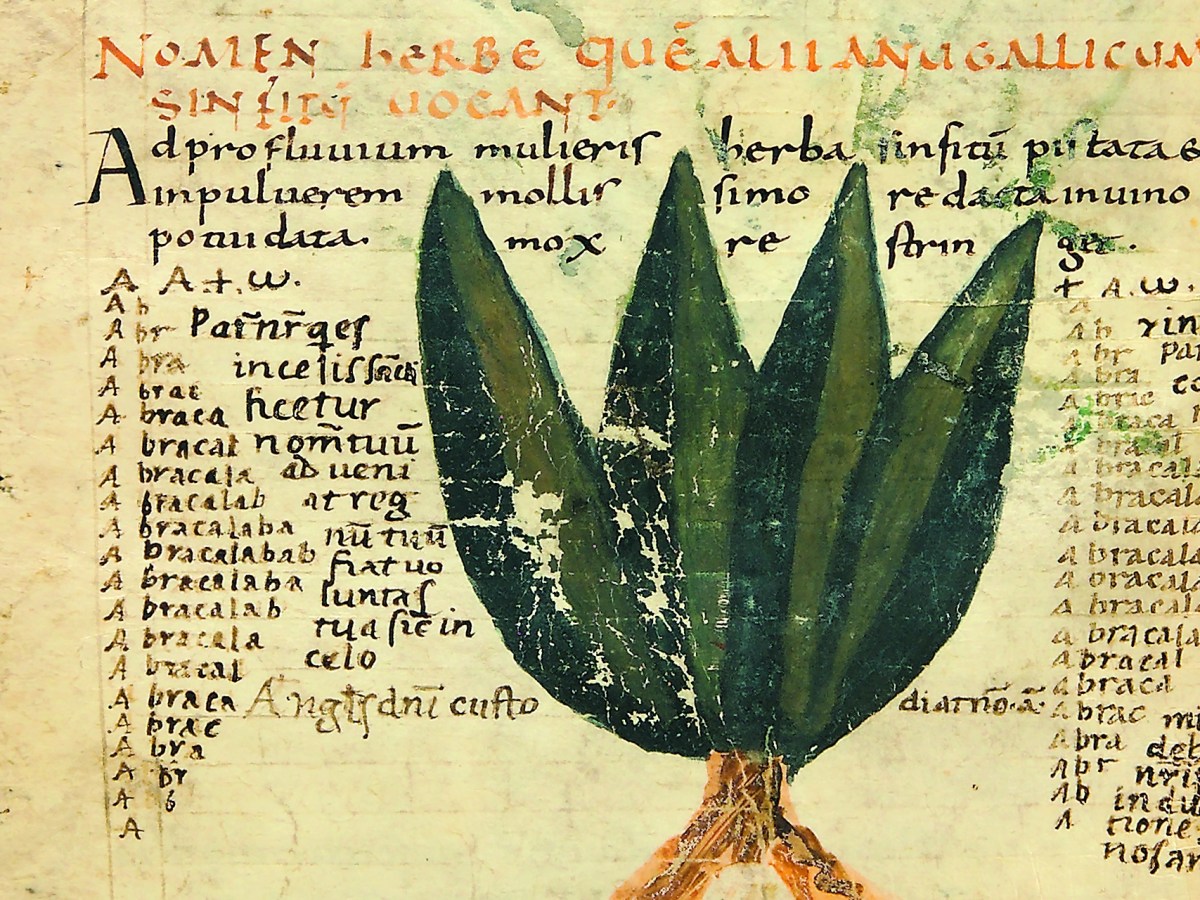 NOMEN herbE QUĒ ALII ANU GALLICUM
SINFITŪ UOCANT.
Ad profluuium mulieris herba sinfitū pistata
inpuluerem mollissimo redacta inuino
potui data. mox restringet.
A A + ω.
A b
A br Pat̄ nr̄ q es
A bra in celis sc̄i
A brac
A braca ficetur
A bracal nom̄ tuū
A bracala adueni
A bracalab at reg
A bracalaba nū tuū
A bracalabab
A bracalaba fiat uo
A bracalab luntas
A bracala tua sic in
A bracal celo
A braca Angls dnī custo diat nō. ā.
A brac
A bra
A br
A b
A
+ A. ω.
A
A b
A br
A bra
A brac
A braca
A bracal
A bracala
A bracala
A bracala
A bracala
A bracala
A bracala
A bracala
A bracal
A braca
A brac
A bra deb
A br nr̄is
A b in du
A tione
nos a